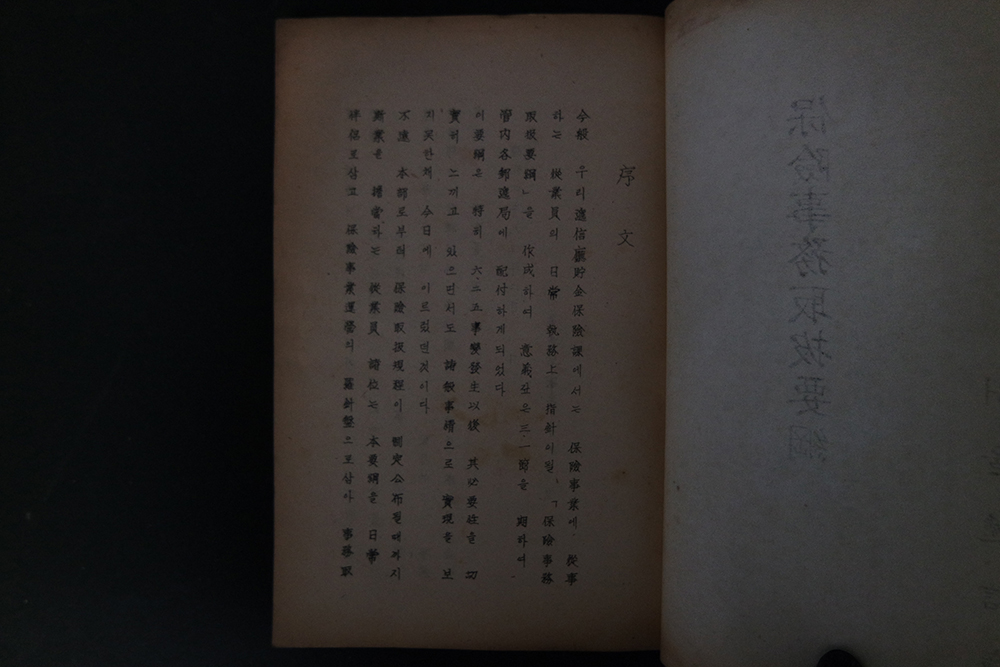 序 文
今般 우리遞信廳貯金保險課에서는 保險事業에 從事
하는 從業員의 日常 執務上 指針이될,「保險事務
取扱要綱」을 作成하여 意義깊은三·一節을 期하여
管內各郵遞局에 配付하게되었다
이要綱은 特히 六.二五事變發生以後 其必要性을 切
實히 느끼고 있으면서도 諸般事情으로 實現을 보
지못한채 今日에 이르렀던것이다
不遠 本部로부터 保險取扱規程이 制定公布될때까지
斯業을 擔當하는 從業員 諸位는 本要綱을 日常
伴侶로삼고 保險事業運營의 羅針盤으로삼아 事務取
保險事務取扱要綱